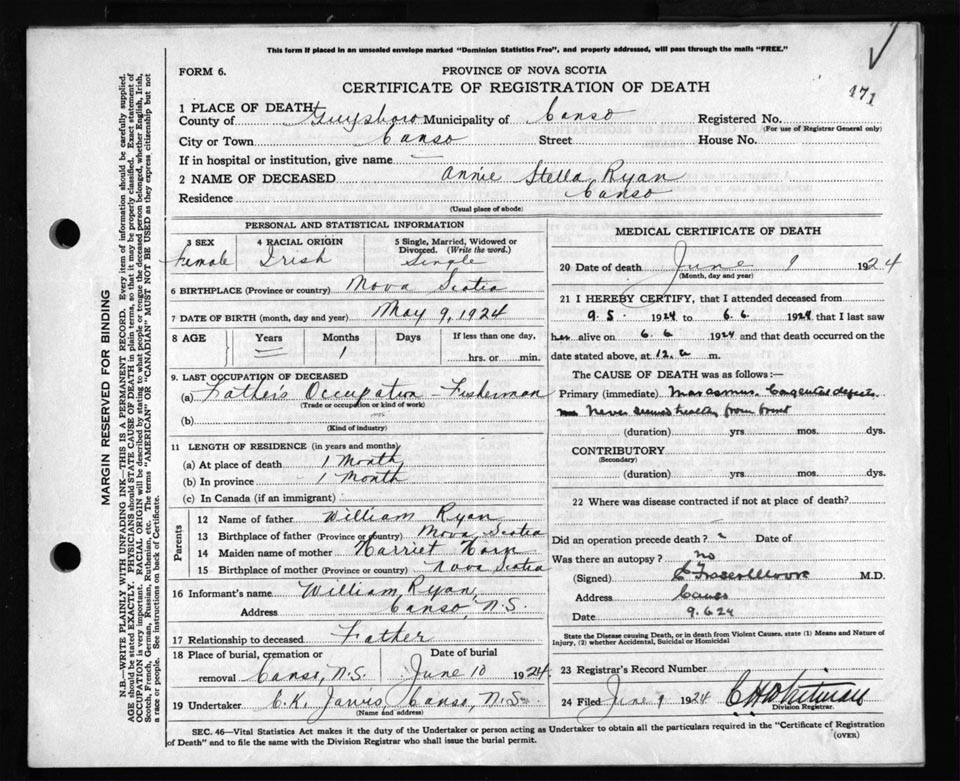 This form if placed in an unsealed envelope marked "Dominion Statistics Free", and properly addressed, will pass through the mails "FREE."
171
FORM 6.
PROVINCE OF NOVA SCOTIA
CERTIFICATE OF REGISTRATION OF DEATH
1 PLACE OF DEATH
County of Guysboro Municipality of Canso Registered No.
(For use of Registrar General only)
City or Town Canso Street House No.
If in hospital or institution, give name —
2 NAME OF DECEASED Annie Stella Ryan
Residence Canso
(Usual place of abode)
PERSONAL AND STATISTICAL INFORMATION
3 SEX Female
4 RACIAL ORIGIN Irish
5 Single, Married, Widowed or Divorced. (Write the word.) Single
6 BIRTHPLACE (Province or country) Nova Scotia
7 DATE OF BIRTH (month, day and year) May 9, 1924
8 AGE Years — Months 1 Days If less than one day, hrs. or min.
9. LAST OCCUPATION OF DECEASED
(a) Father's Occupation - Fisherman
(Trade or occupation or kind of work)
(b)
(Kind of industry)
11 LENGTH OF RESIDENCE (in years and months)
(a) At place of death 1 Month
(b) In province 1 Month
(c) In Canada (if an immigrant)
Parents
12 Name of father William Ryan
13 Birthplace of father (Province or country) Nova Scotia
14 Maiden name of mother Harriet Horn
15 Birthplace of mother (Province or country) Nova Scotia
16 Informant's name William Ryan,
Address Canso, N.S.
17 Relationship to deceased Father
18 Place of burial, cremation or removal Canso, N.S. Date of burial June 10 1924
19 Undertaker C.K. Jarvis, Canso, N.S.
(Name and address)
MEDICAL CERTIFICATE OF DEATH
20 Date of death June 9 1924
(Month, day and year)
21 I HEREBY CERTIFY, that I attended deceased from
9.5. 1924 to 6.6. 1924 that I last saw
her alive on 6.6 1924 and that death occurred on the
date stated above, at 12. a m.
The CAUSE OF DEATH was as follows:—
Primary (immediate) Marasmus. Congenital defects.
Never seemed healthy from birth
(duration) yrs. mos. dys.
CONTRIBUTORY
(Secondary)
(duration) yrs. mos. dys.
22 Where was disease contracted if not at place of death?
Did an operation precede death? Date of
Was there an autopsy? no
(Signed) M.D.
Address Canso
Date 9.6.24
State the Disease causing Death, or in death from Violent Causes, state (1) Means and Nature of Injury, (2) whether Accidental, Suicidal or Homicidal
23 Registrar's Record Number
24 Filed June 9 1924 C H Whitman
Division Registrar.
SEC. 46—Vital Statistics Act makes it the duty of the Undertaker or person acting as Undertaker to obtain all the particulars required in the "Certificate of Registration
of Death" and to file the same with the Division Registrar who shall issue the burial permit.
(OVER)
MARGIN RESERVED FOR BINDING
N.B.—WRITE PLAINLY WITH UNFADING INK—THIS IS A PERMANENT RECORD. Every item of information should be carefully supplied.
AGE should be stated EXACTLY. PHYSICIANS should STATE CAUSE OF DEATH in plain terms, so that it may be properly classified. Exact statement of
OCCUPATION is very important. RACIAL ORIGIN will be described by stating to what people or tongue the deceased person belonged, whether English, Irish,
Scotch, French, German, Russian, Ruthenian, etc. The terms "AMERICAN" or "CANADIAN" MUST NOT BE USED as they express citizenship but not
a race or people. See instructions on back of Certificate.